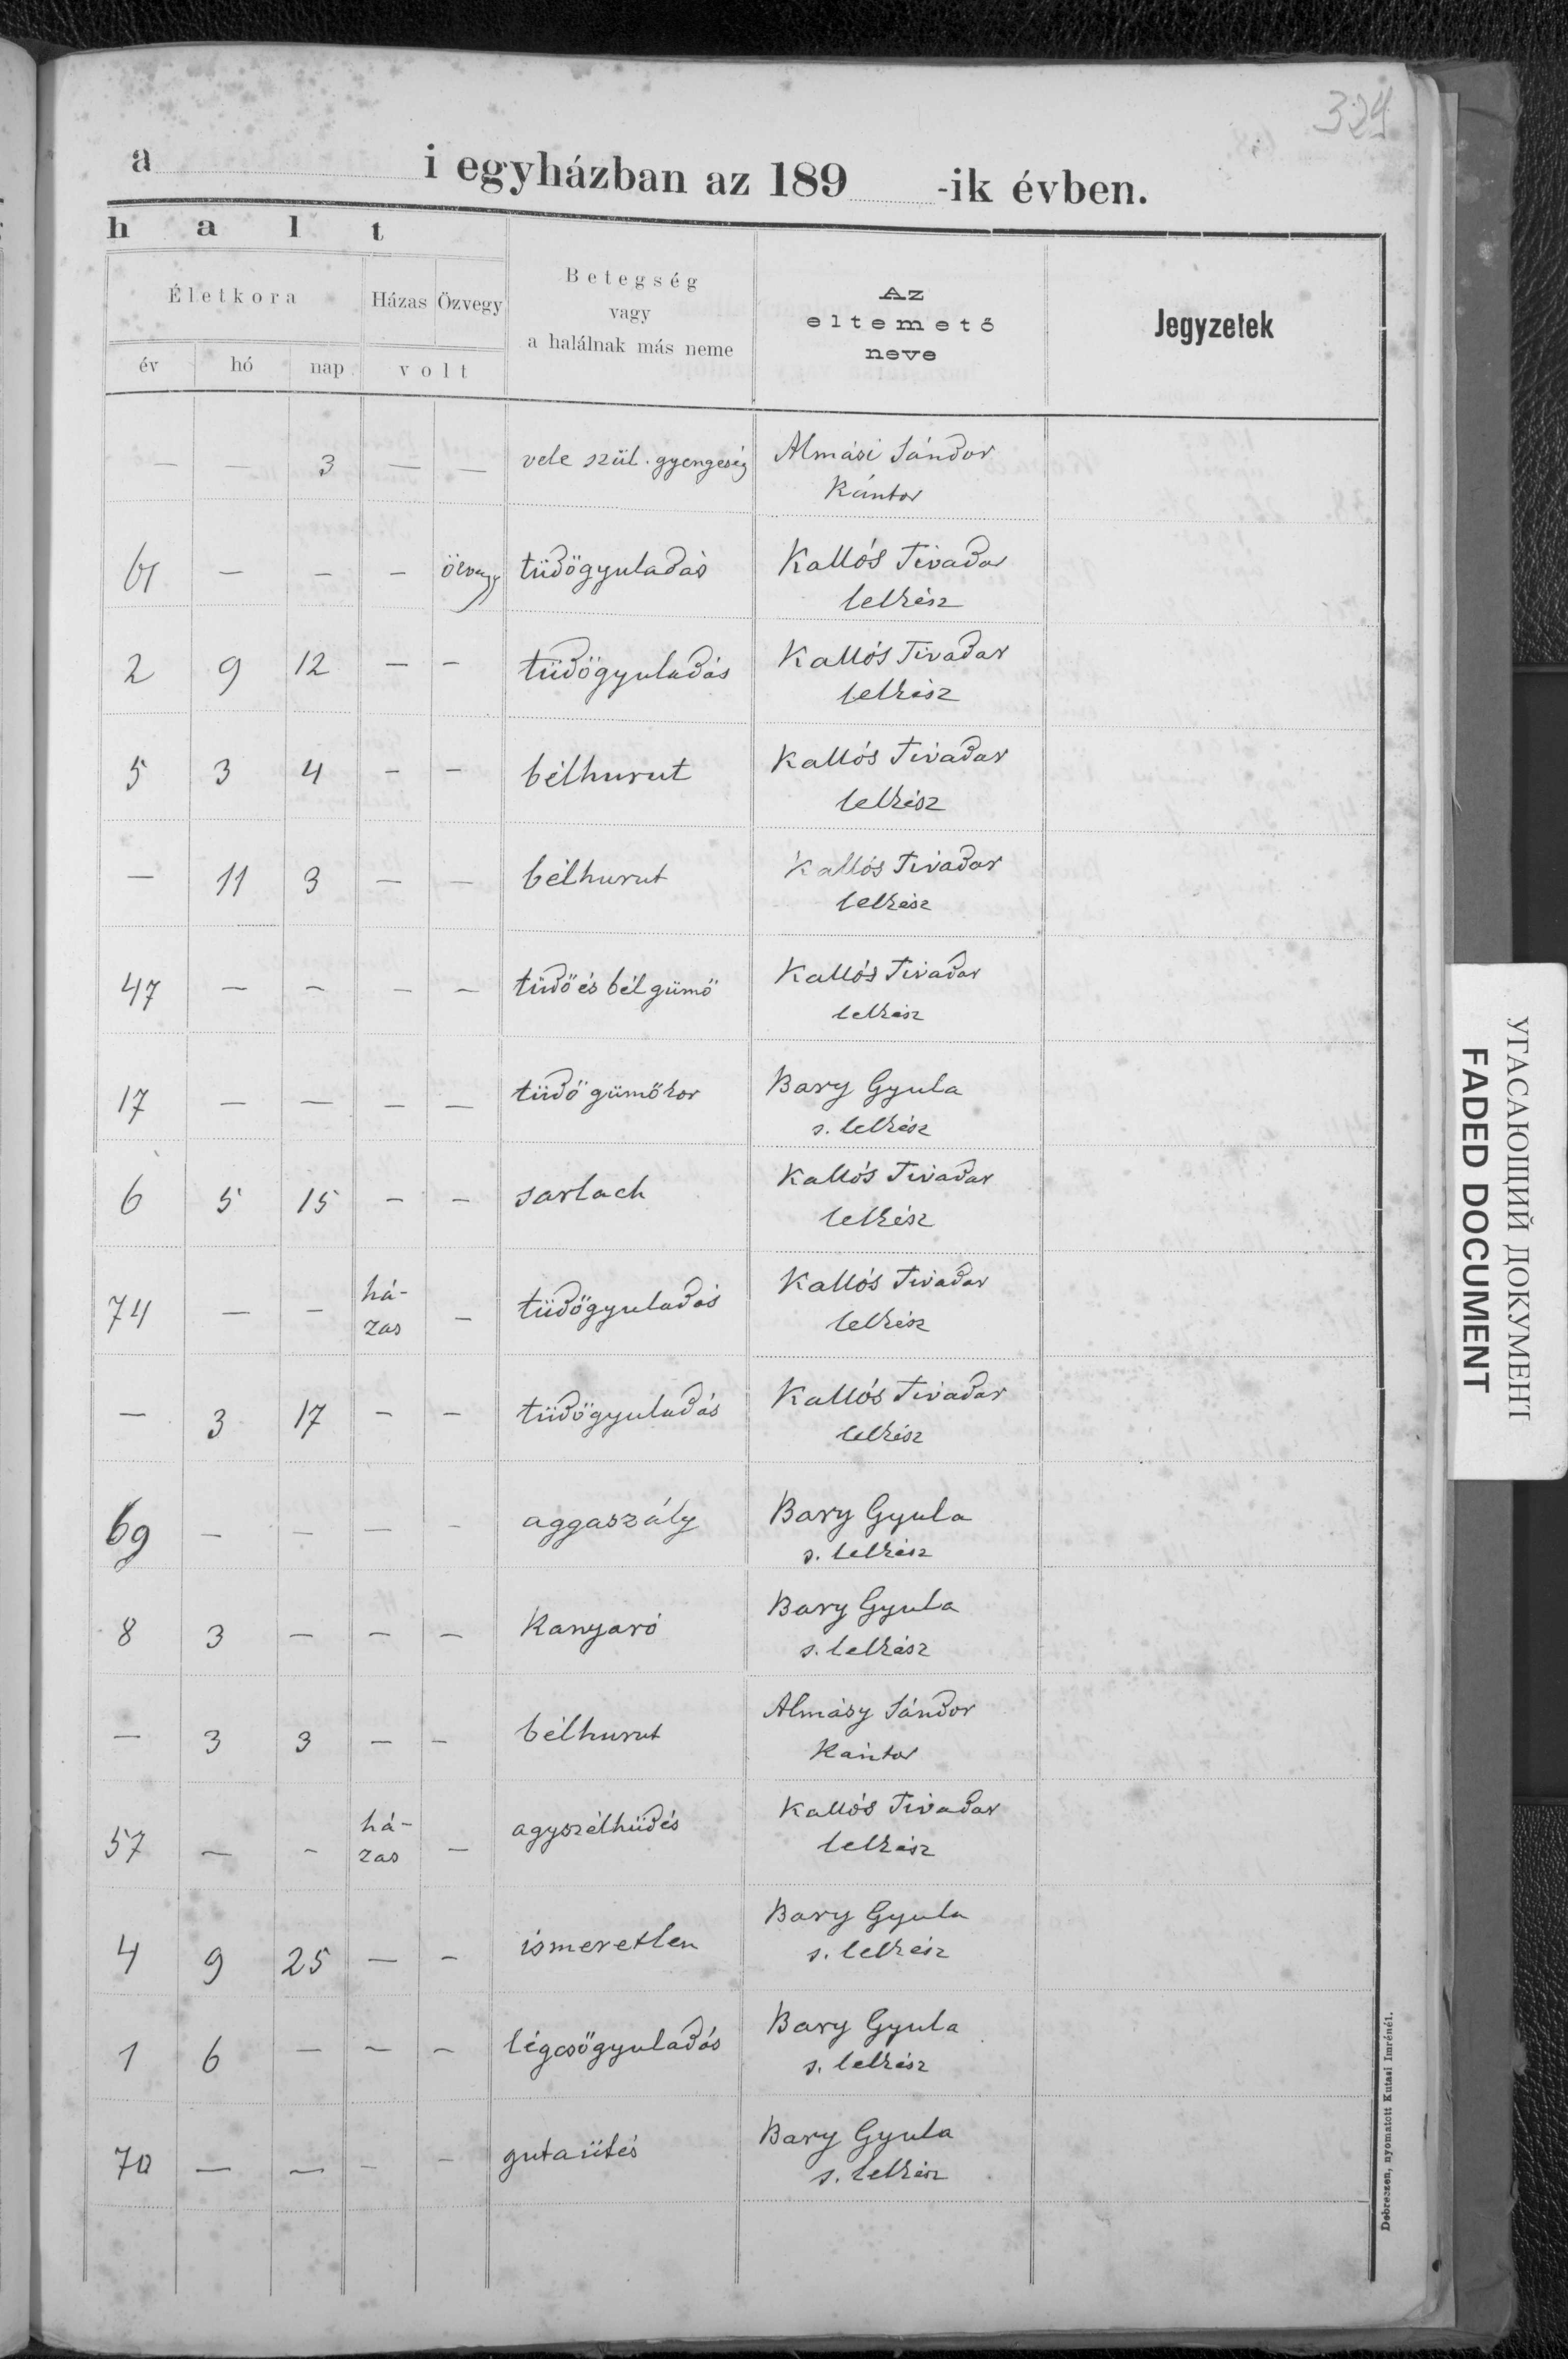 324
a i egyházban az 189 -ik évben.
h a l t
Életkora Házas Özvegy Betegség vagy a halálnak más neme Az eltemető neve Jegyzetek
év hó nap volt
— — 3 — — vele szül. gyengeség Almási Sándor
Kántor
61 — — — özvegy tüdőgyuladás Kallós Tivadar
lelkész
2 9 12 — — tüdőgyuladás Kallós Tivadar
lelkész
5 3 4 — — bélhurut Kallós Tivadar
lelkész
— 11 3 — — bélhurut Kallós Tivadar
lelkész
47 — — — — tüdő és bél gümő Kallós Tivadar
lelkész
17 — — — — tüdő gümőkor Bary Gyula
s. lelkész
6 5 15 — — sarlach Kallós Tivadar
lelkész
74 — — há-
zas — tüdőgyuladás Kallós Tivadar
lelkész
— 3 17 — — tüdőgyuladás Kallós Tivadar
lelkész
69 — — — — aggaszály Bary Gyula
s. lelkész
8 3 — — — Kanyaró Bary Gyula
s. lelkész
— 3 3 — — bélhurut Almásy Sándor
Kántor
57 — — há-
zas — agyszélhüdés Kallós Tivadar
lelkész
4 9 25 — — ismeretlen Bary Gyula
s. lelkész
1 6 — — — légcsőgyuladás Bary Gyula
s. lelkész
70 — — — — gutaütés Bary Gyula
s. lelkész
Debreczen, nyomatott Kutasi Imrénél.
УГАСАЮЩИЙ ДОКУМЕНТ
FADED DOCUMENT